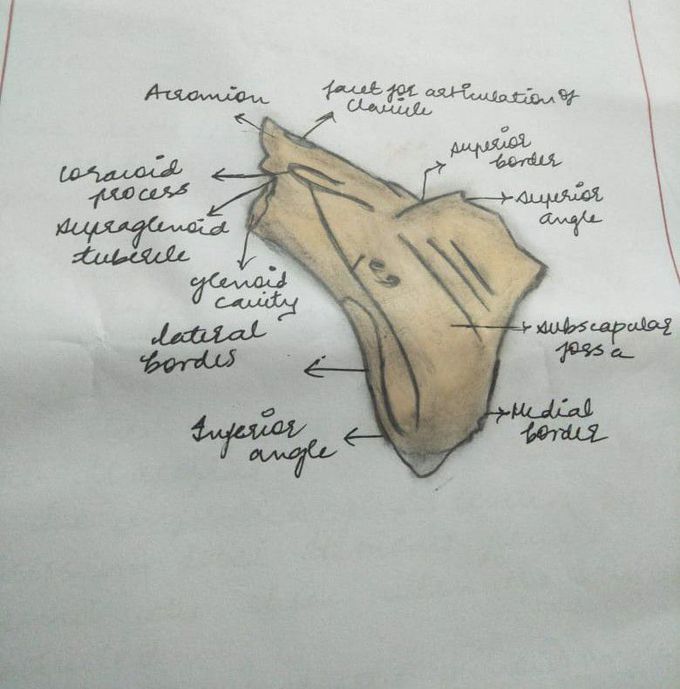 Acromion
facet for articulation of
clavicle
superior
border
superior
angle
coracoid
process
supraglenoid
tubercle
glenoid
cavity
lateral
border
subscapular
fossa
Medial
border
Inferior
angle